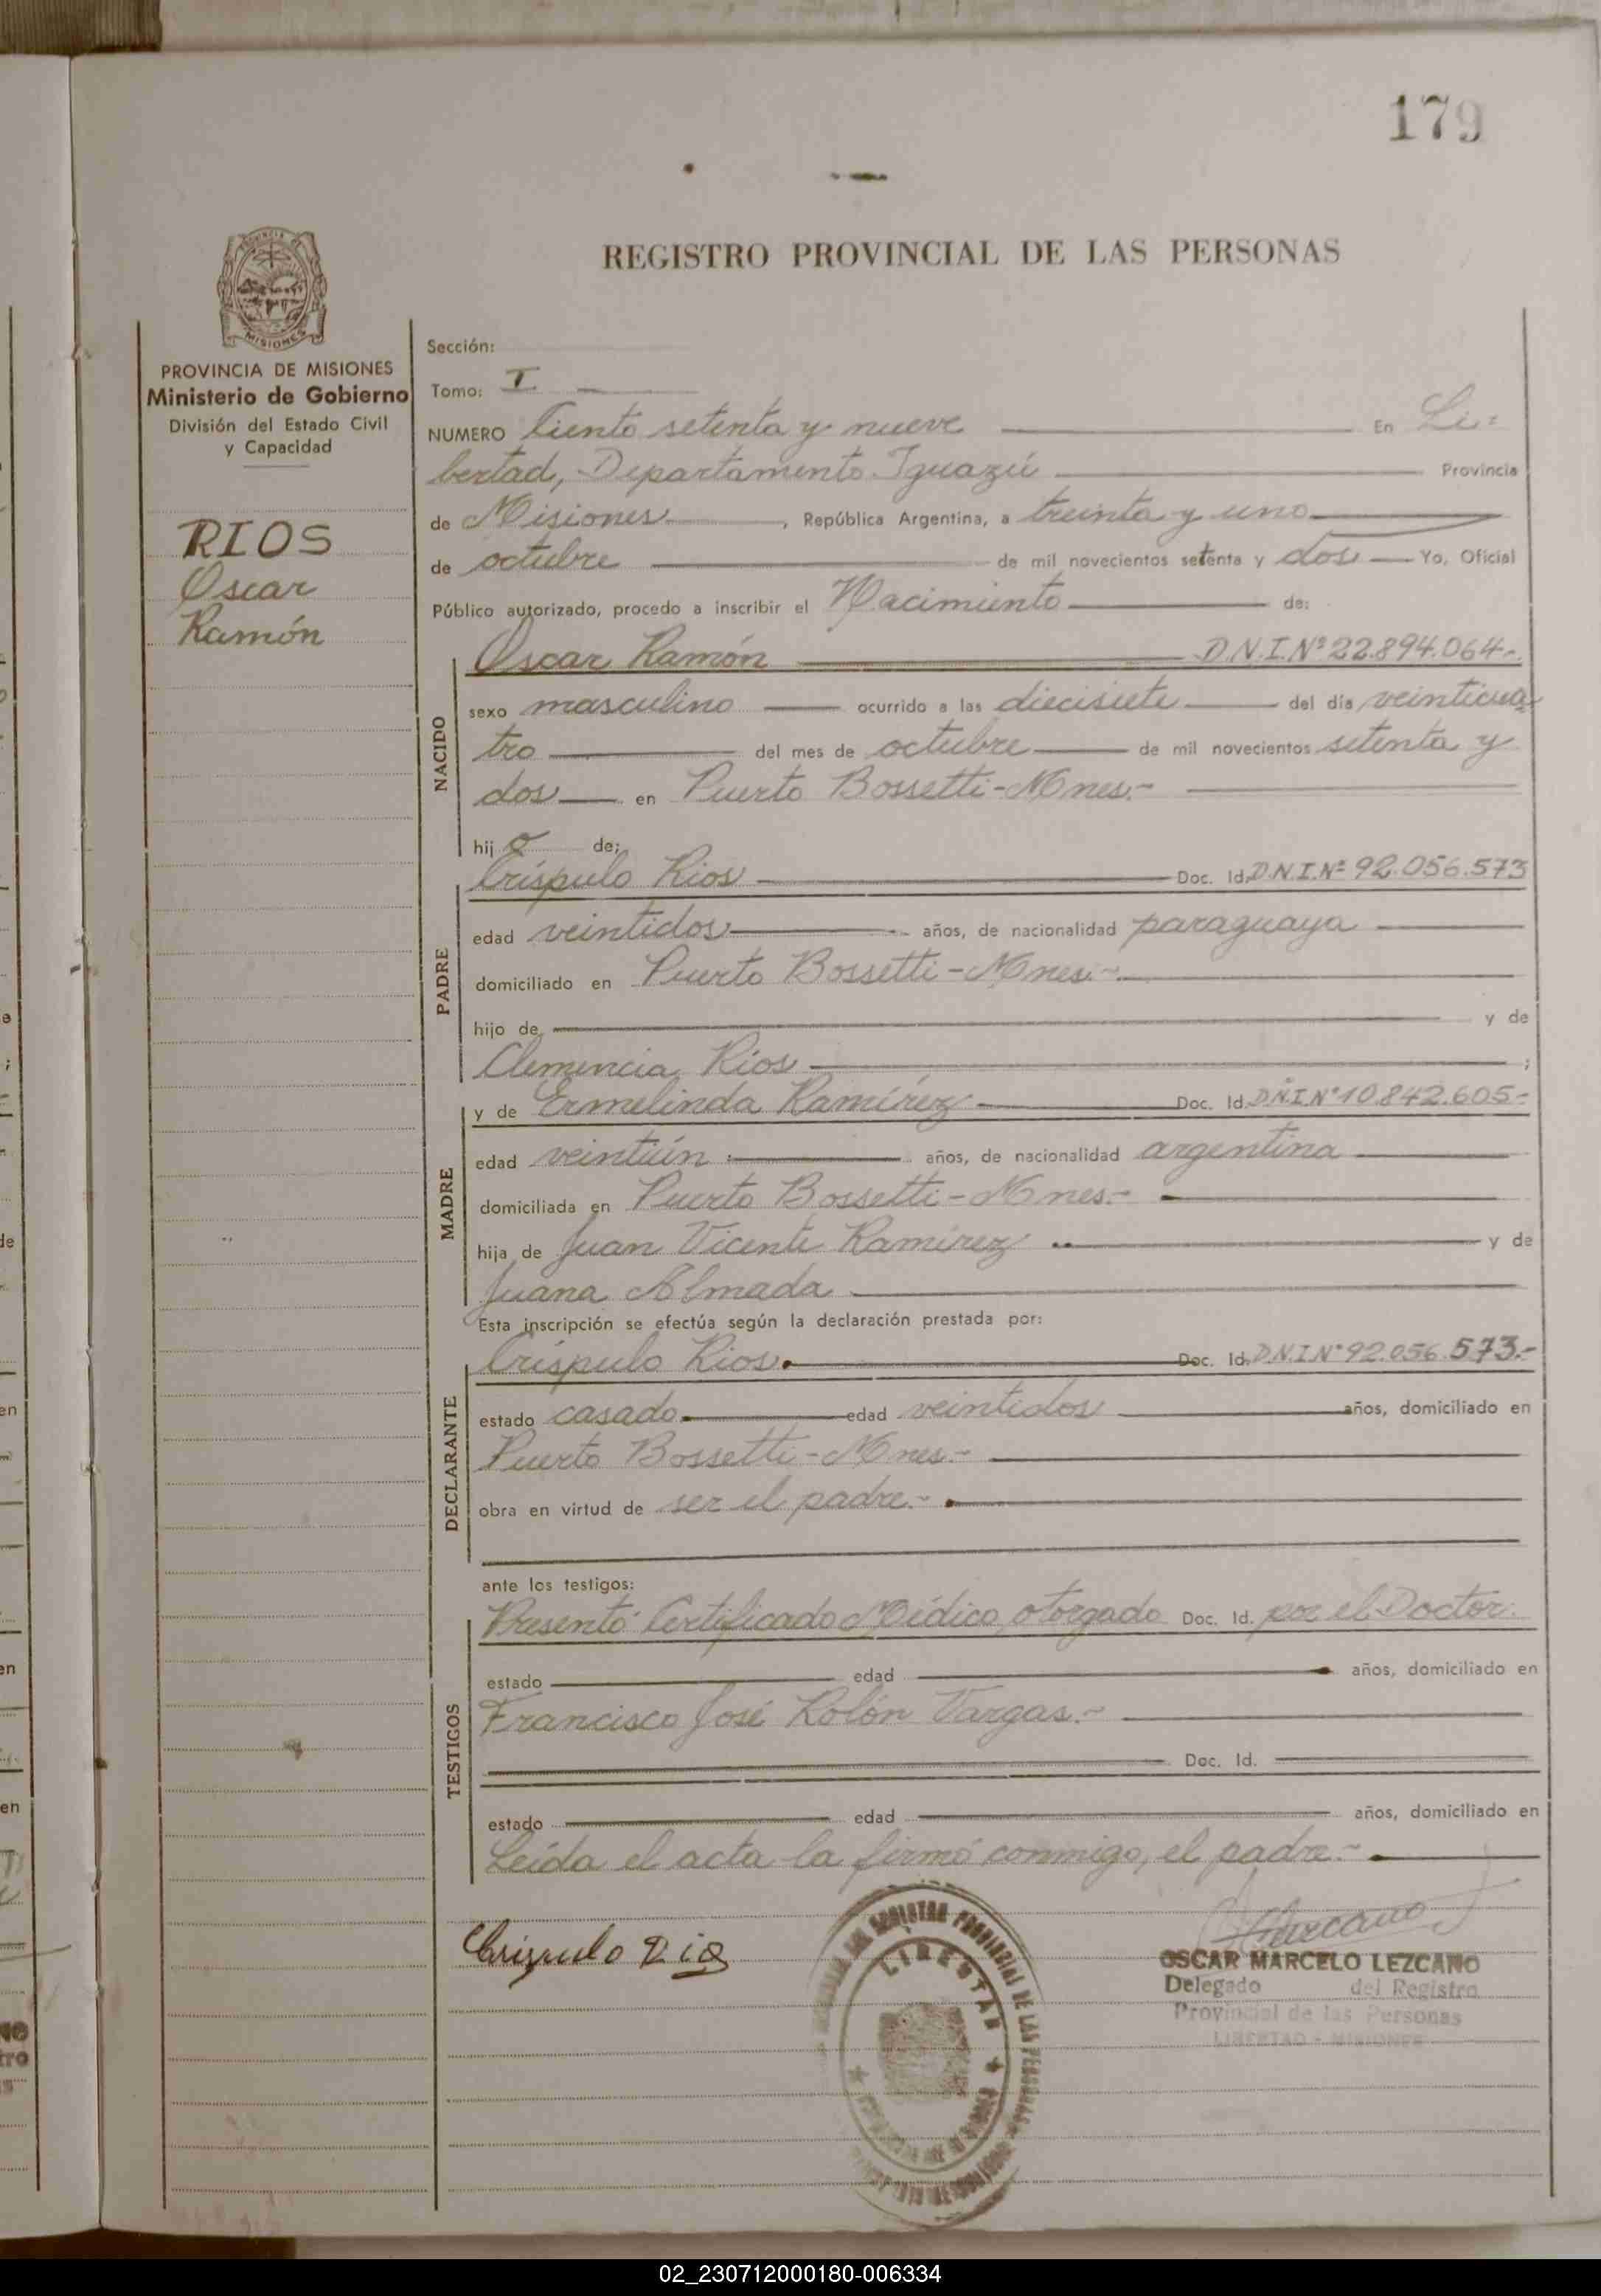 179
REGISTRO PROVINCIAL DE LAS PERSONAS
MISIONES
PROVINCIA DE MISIONES
Ministerio de Gobierno
División del Estado Civil
y Capacidad
RIOS
Oscar
Ramón
Sección:
Tomo: I
NUMERO Ciento setenta y nueve En Li-
bertad, Departamento Iguazú Provincia
de Misiones, República Argentina, a treinta y uno
de octubre de mil novecientos setenta y dos Yo, Oficial
Público autorizado, procedo a inscribir el Nacimiento de:
NACIDO
Oscar Ramón D.N.I.Nº 22.894.064-
sexo masculino ocurrido a las diecisiete del día veinticua
tro del mes de octubre de mil novecientos setenta y
dos en Puerto Bossetti-Mnes.-
hijo de:
PADRE
Críspulo Rios Doc. Id. D.N.I.Nº 92.056.573
edad veintidos años, de nacionalidad paraguaya
domiciliado en Puerto Bossetti-Mnes.-
hijo de y de
Clemencia Rios ;
MADRE
y de Ermelinda Ramírez Doc. Id. D.N.I.Nº 10.842.605-
edad veintiún años, de nacionalidad argentina
domiciliada en Puerto Bossetti-Mnes.-
hija de Juan Vicente Ramírez y de
Juana Almada
Esta inscripción se efectúa según la declaración prestada por:
DECLARANTE
Críspulo Rios. Doc. Id. D.N.I.Nº 92.056.573.-
estado casado edad veintidos años, domiciliado en
Puerto Bossetti-Mnes.-
obra en virtud de ser el padre.-
ante los testigos:
TESTIGOS
Presentó Certificado Médico otorgado Doc. Id. por el Doctor
estado edad años, domiciliado en
Francisco José Rolón Vargas.-
Doc. Id.
estado edad años, domiciliado en
Leída el acta la firmó conmigo, el padre.-
OSCAR MARCELO LEZCANO
Delegado del Registro
Provincial de las Personas
LIBERTAD - MISIONES
REGISTRO PROVINCIAL DE LAS PERSONAS
LIBERTAD
02_230712000180-006334